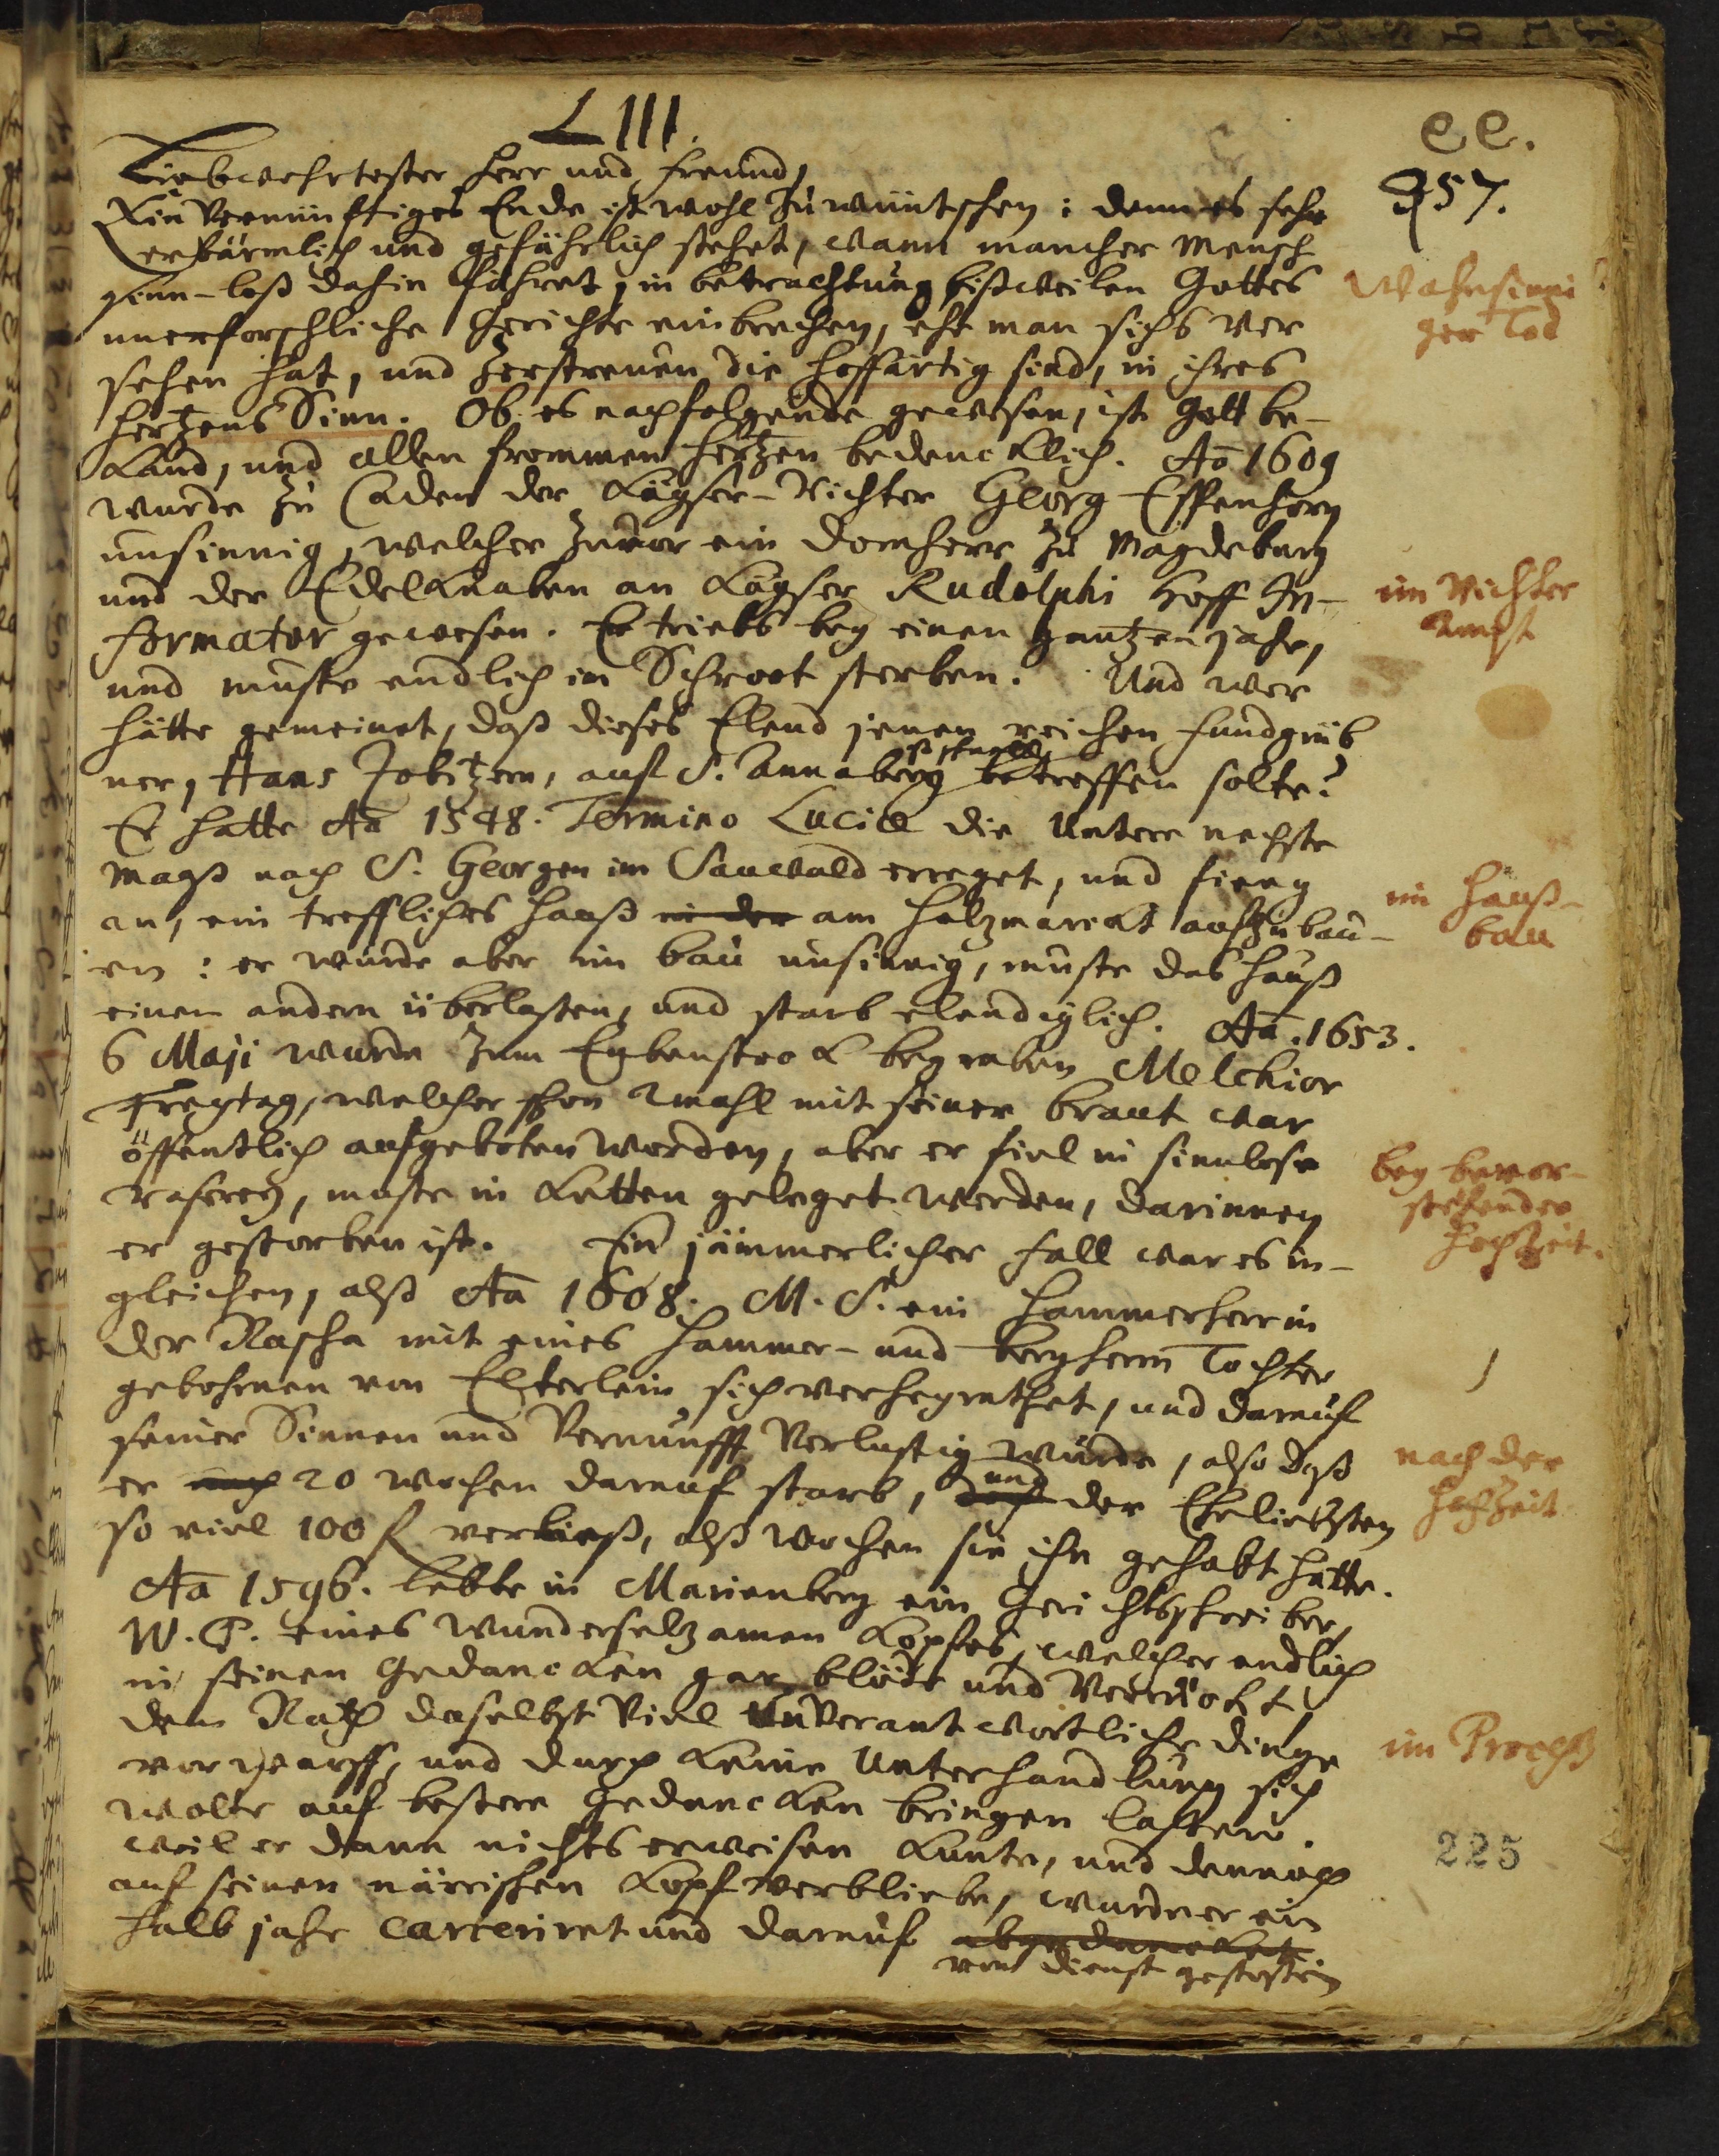 LIII.
ee.
357.
Liebwehrtester Herr und Freund,
Ein Vernünfftiges Ende ist wohl zu wüntschen: denn es sehr
erbärmlich und gefährlich stehet, wann mancher Mensch
sinn-loß dahin fähret, in betrachtung bißweilen Gottes
Wahnsinni
ger Tod
unerforschliche Gerichte einbrechen, ehe man sichs ver
sehen hat, und zerstreuen die hoffärtig sind, in ihres
Hertzens Sinn. Ob es nachfolgende gewesen, ist Gott be-
kand, und allen frommen Hertzen bedencklich. Ao 1609
wurde zu Caden der Käyser-Richter Georg Essenherr
unsinnig, welcher zuvor ein Domherr zu Magdeburg
und der Edelknaben an Käyser Rudolphi Hoff In-
im Richter
Ampt
formator gewesen. Er triebs bey einen gantzen jahr,
und muste endlich in Schroot sterben. Und wer
hätte gemeinet, daß dieses Elend jenen reichen Fundgrüb
ner, Hans Jobitzern, auf S. Annaberg betreffen solte?
Er hatte Aō 1548. Termino Luciæ die Untere nechste
Maaß nach S. Georgen im Sauwald erreget, und fieng
an, ein treffliches Hauß in der am Holzmarckt aufzubau-
im Hauß-
bau
en: er wurde aber im bau unsinnig, muste das Hauß
einem andern überlassen, und starb elendiglich. Aō. 1653.
6 Maji wurde zum Eybenstock begraben Melchior
Freytag, welcher schon 2mahl mit seiner braut war
öffentlich aufgeboten worden, aber er fiel in sinnlose
bey bevor-
stehender
Hochzeit.
raserey, muste in Ketten geleget werden, darinnen
er gestorben ist. Ein jämmerlicher Fall war es in-
gleichen, alß Aō 1608. M. S. ein Hammerherr in
der Rascha mit eines Hammer- und bergherrn Tochter
gebohrnen von Elterlein sich verheyrathet, und darauf
seiner Sinnen und Vernunfft Verlustig wurde, also daß
nach der
Hochzeit
er nach 20 wochen darauf starb, und der Eheliebsten
so viel 100 f verließ, alß wochen sie ihn gehabt hatte.
Aō 1596. lebte in Marienberg ein Gerichtschreiber,
W. P. eines wunderseltzamen Kopfes, welcher endlich
in seinen Gedancken gar blöde und Verrückt
dem Rath daselbst Viel Unverantwortliche dinge
im Proceß
vorwarff, und durch keine Unterhandlung sich
wolte auf bessere Gedancken bringen lassen.
weil er dann nichts erweisen kunte, und dennoch
225
auf seinen närrischen Kopf verbliebe, wurde er ein
halb jahr carceriret und darauf abgedancket
von dienst gestossen